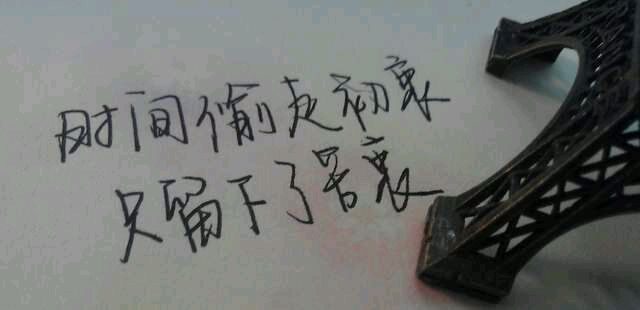 时间偷走初衷
只留下了苦衷